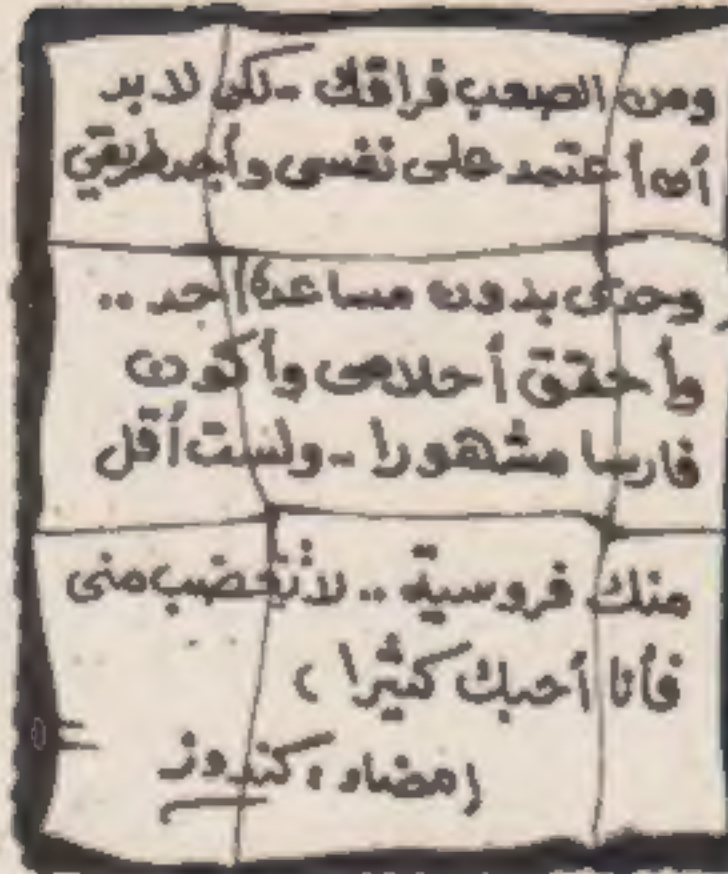 ومن الصعب فراقك - لكن لابد
أن أعتمد على نفسى وأجد طريقي
وحدى بدون مساعدة أحد ..
وأحقق أحلامى وأكون
فارسا مشهورا - ولست أقل
منك فروسية .. لا تغضب منى
فأنا أحبك كثيرا ،
إمضاء : كندوز